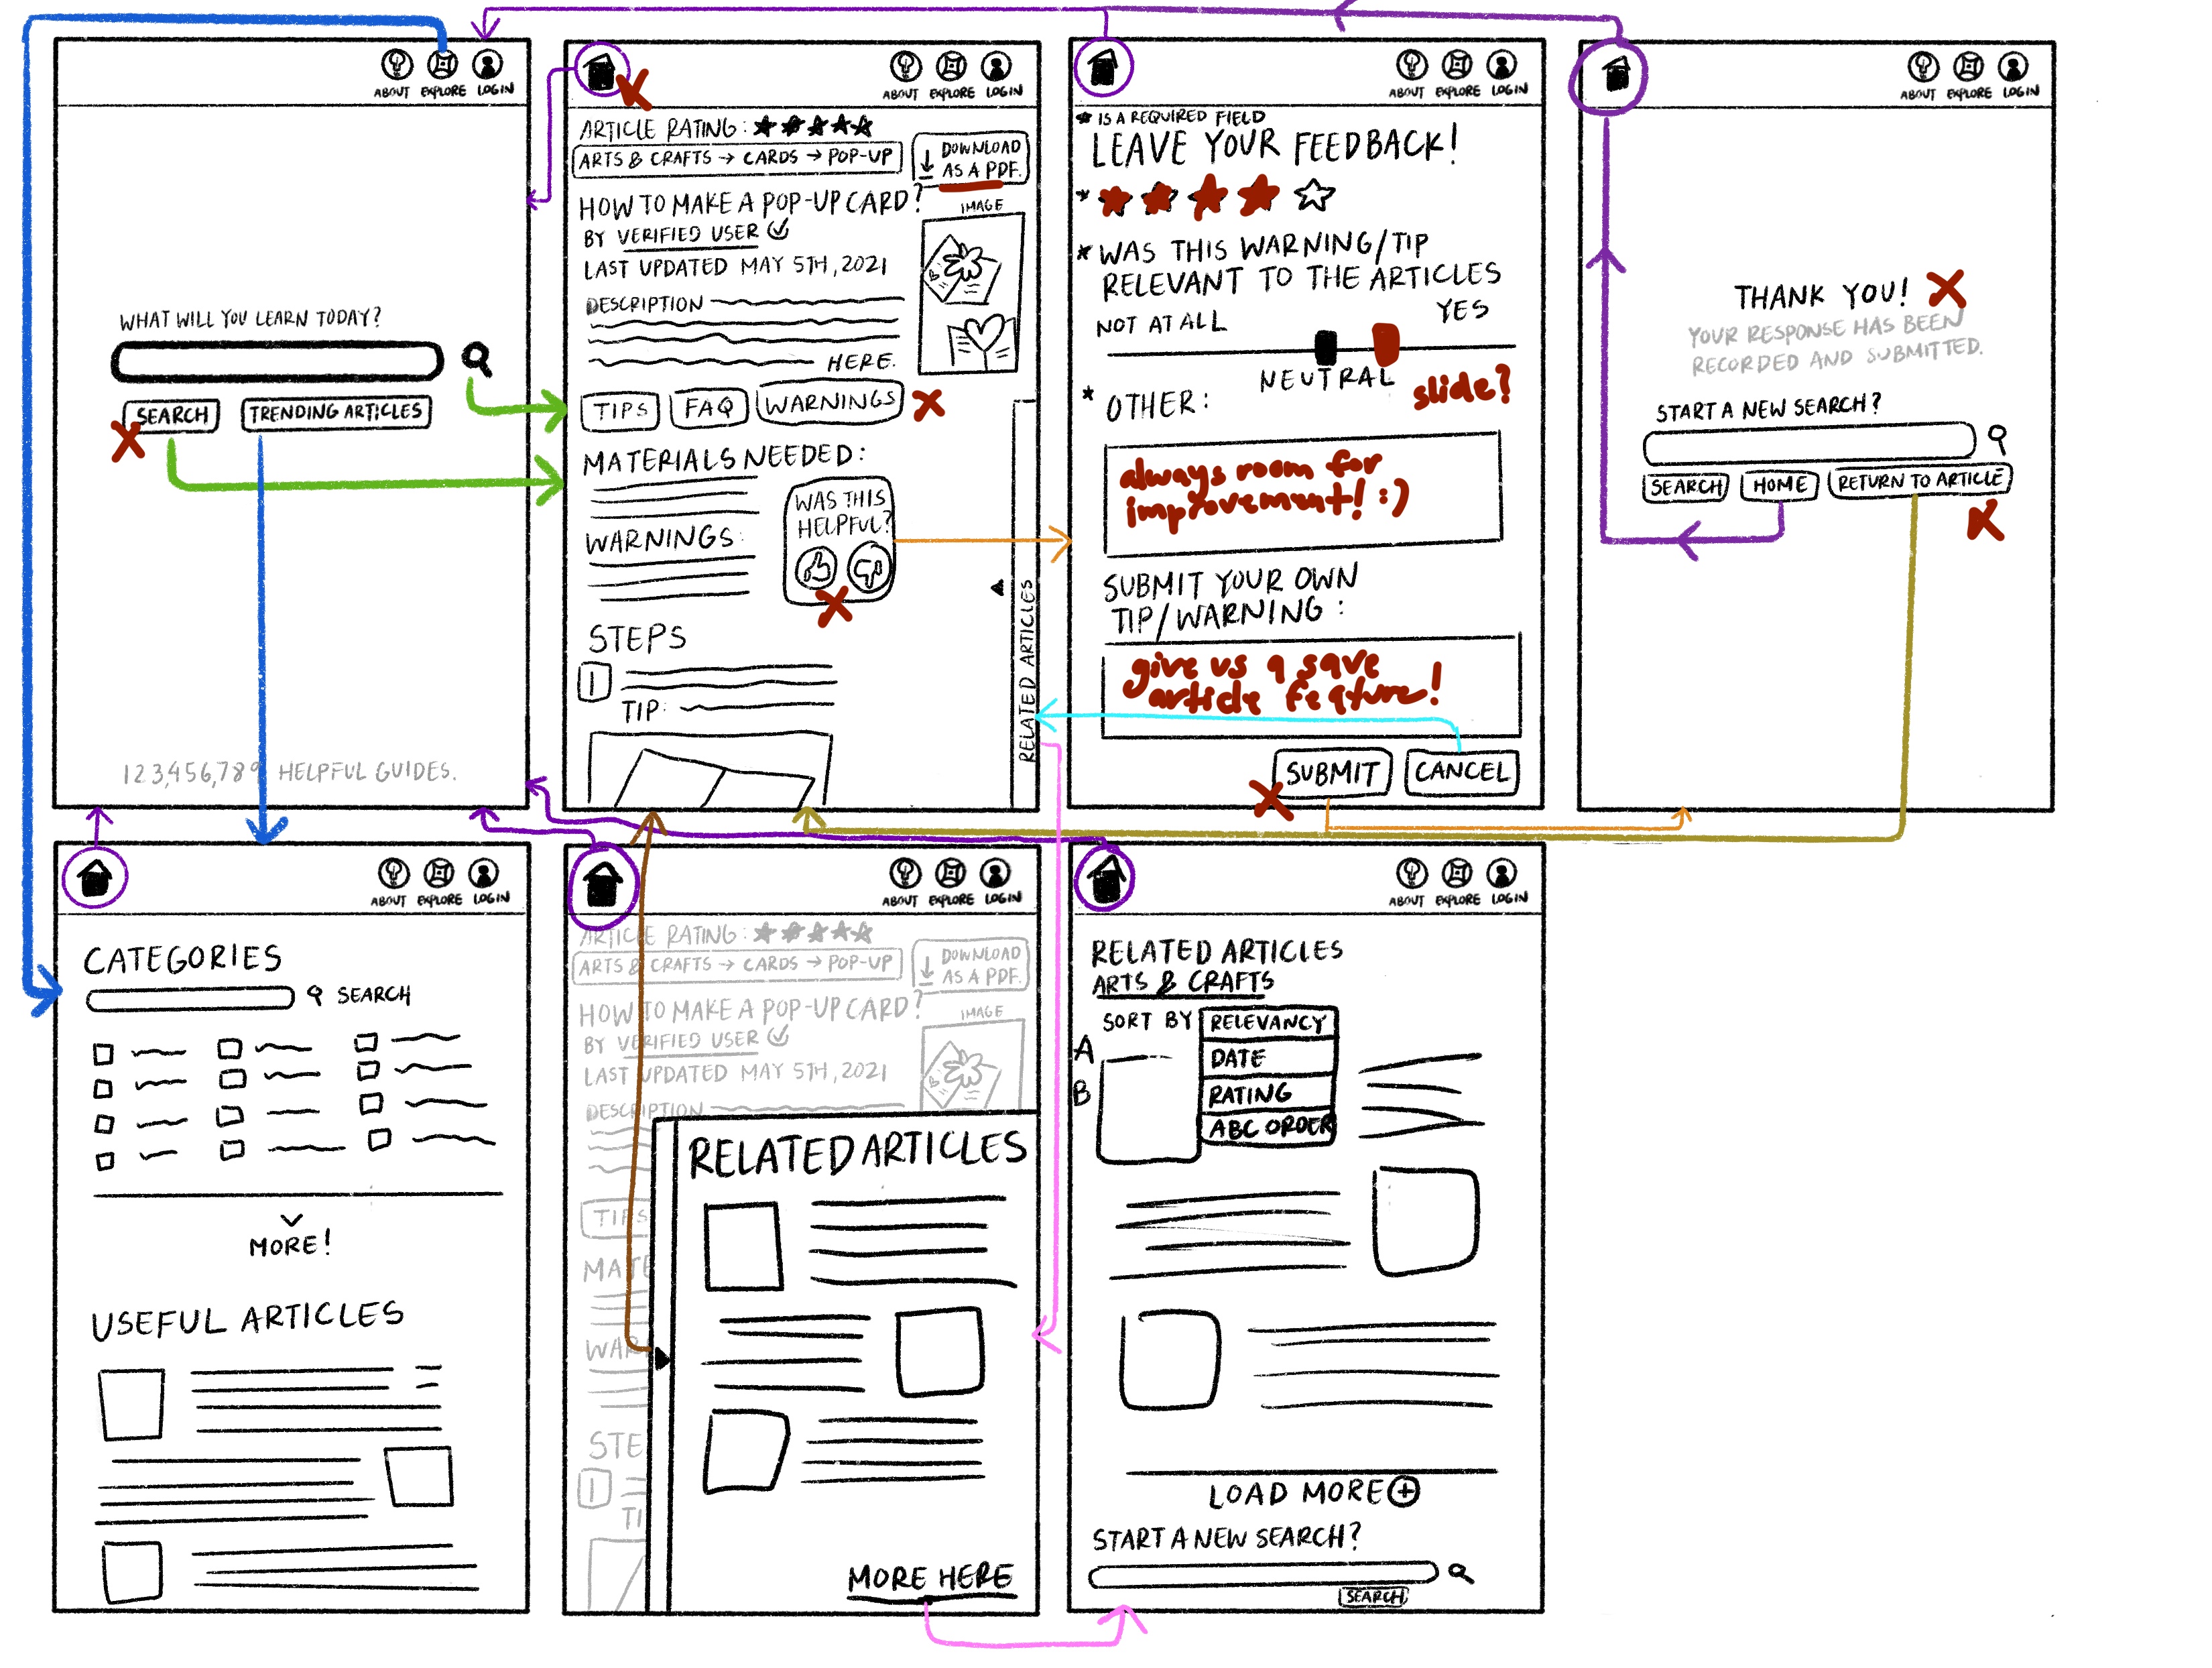 ABOUT EXPLORE LOGIN
WHAT WILL YOU LEARN TODAY?
SEARCH
TRENDING ARTICLES
123,456,789 HELPFUL GUIDES.
ABOUT EXPLORE LOGIN
ARTICLE RATING:
ARTS & CRAFTS → CARDS → POP-UP
DOWNLOAD
AS A PDF.
HOW TO MAKE A POP-UP CARD?
BY VERIFIED USER
LAST UPDATED MAY 5TH, 2021
IMAGE
DESCRIPTION
HERE.
TIPS
FAQ
WARNINGS
MATERIALS NEEDED:
WAS THIS
HELPFUL?
WARNINGS:
STEPS
1
TIP:
RELATED ARTICLES
ABOUT EXPLORE LOGIN
* IS A REQUIRED FIELD
LEAVE YOUR FEEDBACK!
*
* WAS THIS WARNING/TIP
RELEVANT TO THE ARTICLES
NOT AT ALL
YES
NEUTRAL
slide?
* OTHER:
always room for
improvement! :)
SUBMIT YOUR OWN
TIP/WARNING:
give us a save
article feature!
SUBMIT
CANCEL
ABOUT EXPLORE LOGIN
THANK YOU!
YOUR RESPONSE HAS BEEN
RECORDED AND SUBMITTED.
START A NEW SEARCH?
SEARCH
HOME
RETURN TO ARTICLE
ABOUT EXPLORE LOGIN
CATEGORIES
SEARCH
MORE!
USEFUL ARTICLES
ABOUT EXPLORE LOGIN
ARTICLE RATING:
ARTS & CRAFTS → CARDS → POP-UP
DOWNLOAD
AS A PDF.
HOW TO MAKE A POP-UP CARD?
BY VERIFIED USER
LAST UPDATED MAY 5TH, 2021
IMAGE
DESCRIPTION
RELATED ARTICLES
TIPS
MATE
WAR
STE
1
TI
MORE HERE
ABOUT EXPLORE LOGIN
RELATED ARTICLES
ARTS & CRAFTS
SORT BY
RELEVANCY
DATE
RATING
ABC ORDER
A
B
LOAD MORE
START A NEW SEARCH?
SEARCH